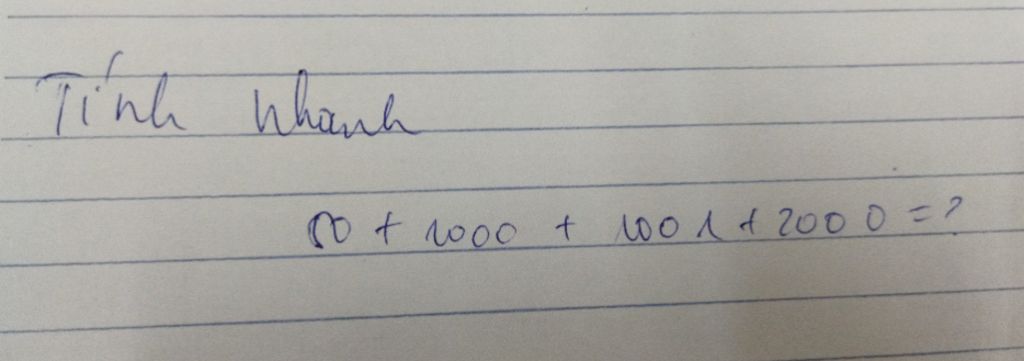 Tính nhanh
50 + 1000 + 1001 + 2000 = ?